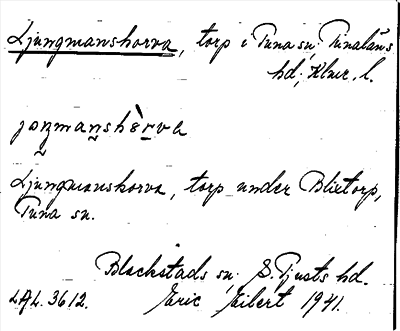 Ljungmanshorva, torp i Tuna sn; Tunaläns
hd; Klmr. l.
joŋmanshòrva
Ljungmanshorva, torp under Blixtorp,
Tuna sn.
Blackstads sn; S. Tjusts hd.
LAL. 3612. Eric Eilert 1941.